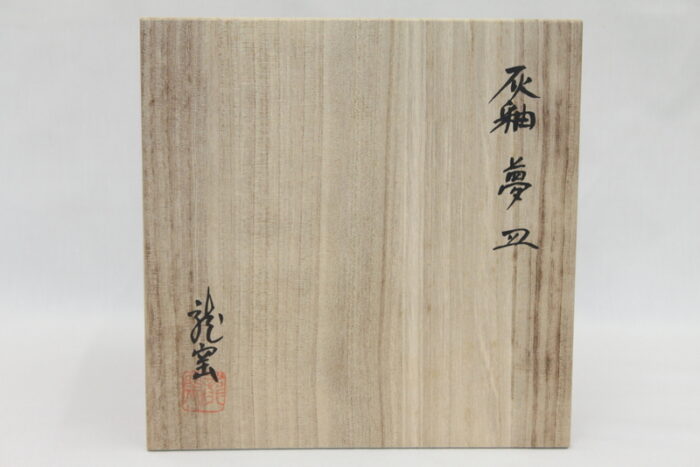 灰釉 夢 皿
龍窯